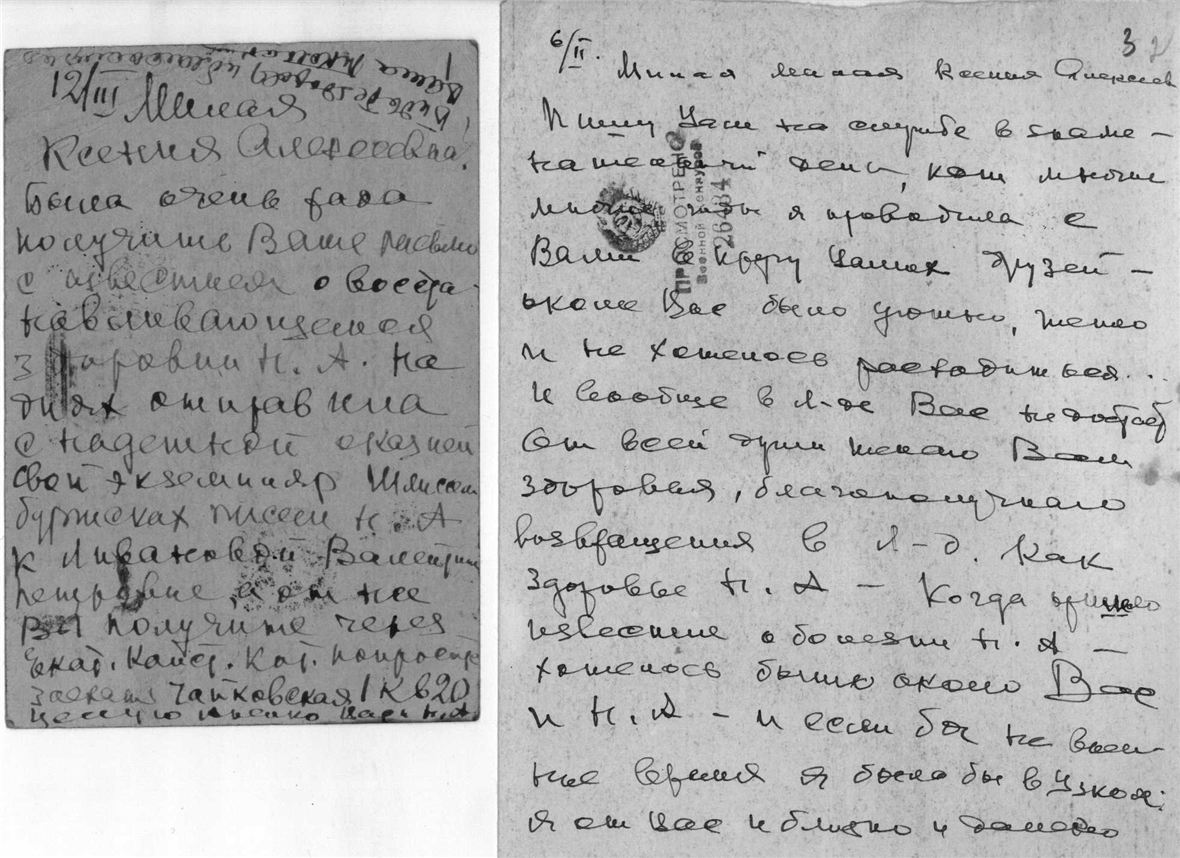 12/III Милая
Ксения Алексеевна!
Была очень рада
получить Ваше письмо
с известием о восста-
навливающемся
здоровии Н. А. На
днях отправила
с надежной оказией
свой экземпляр Шлиссель
бургских писем Н. А
к Ливановой Валентин
Петровне, и от нее
Вы получите через
Екат. Конст. Кот. попросите
заехать Чайковская 1 кв 20
Целую Вас Н. А
Будьте здоровы
Ваша
6/II.
3
Милая милая Ксения Алексеев
Пишу Вам на службе в знаме-
нательный день, кот многие
многие годы я проводила с
Вами в кругу Ваших друзей -
около Вас было уютно, тепло
и не хотелось расходиться...
И вообще в Л-де Вас недостает
От всей души желаю Вам
здоровья, благополучного
возвращения в Л-д. Как
здоровье Н. А - Когда пришло
известие о болезни Н. А -
хотелось быть около Вас
и Н. А - и если бы не воен-
ное время я была бы в Узком:
я от Вас и близко и далеко
ПРОСМОТРЕНО
Военной Цензурой
26484